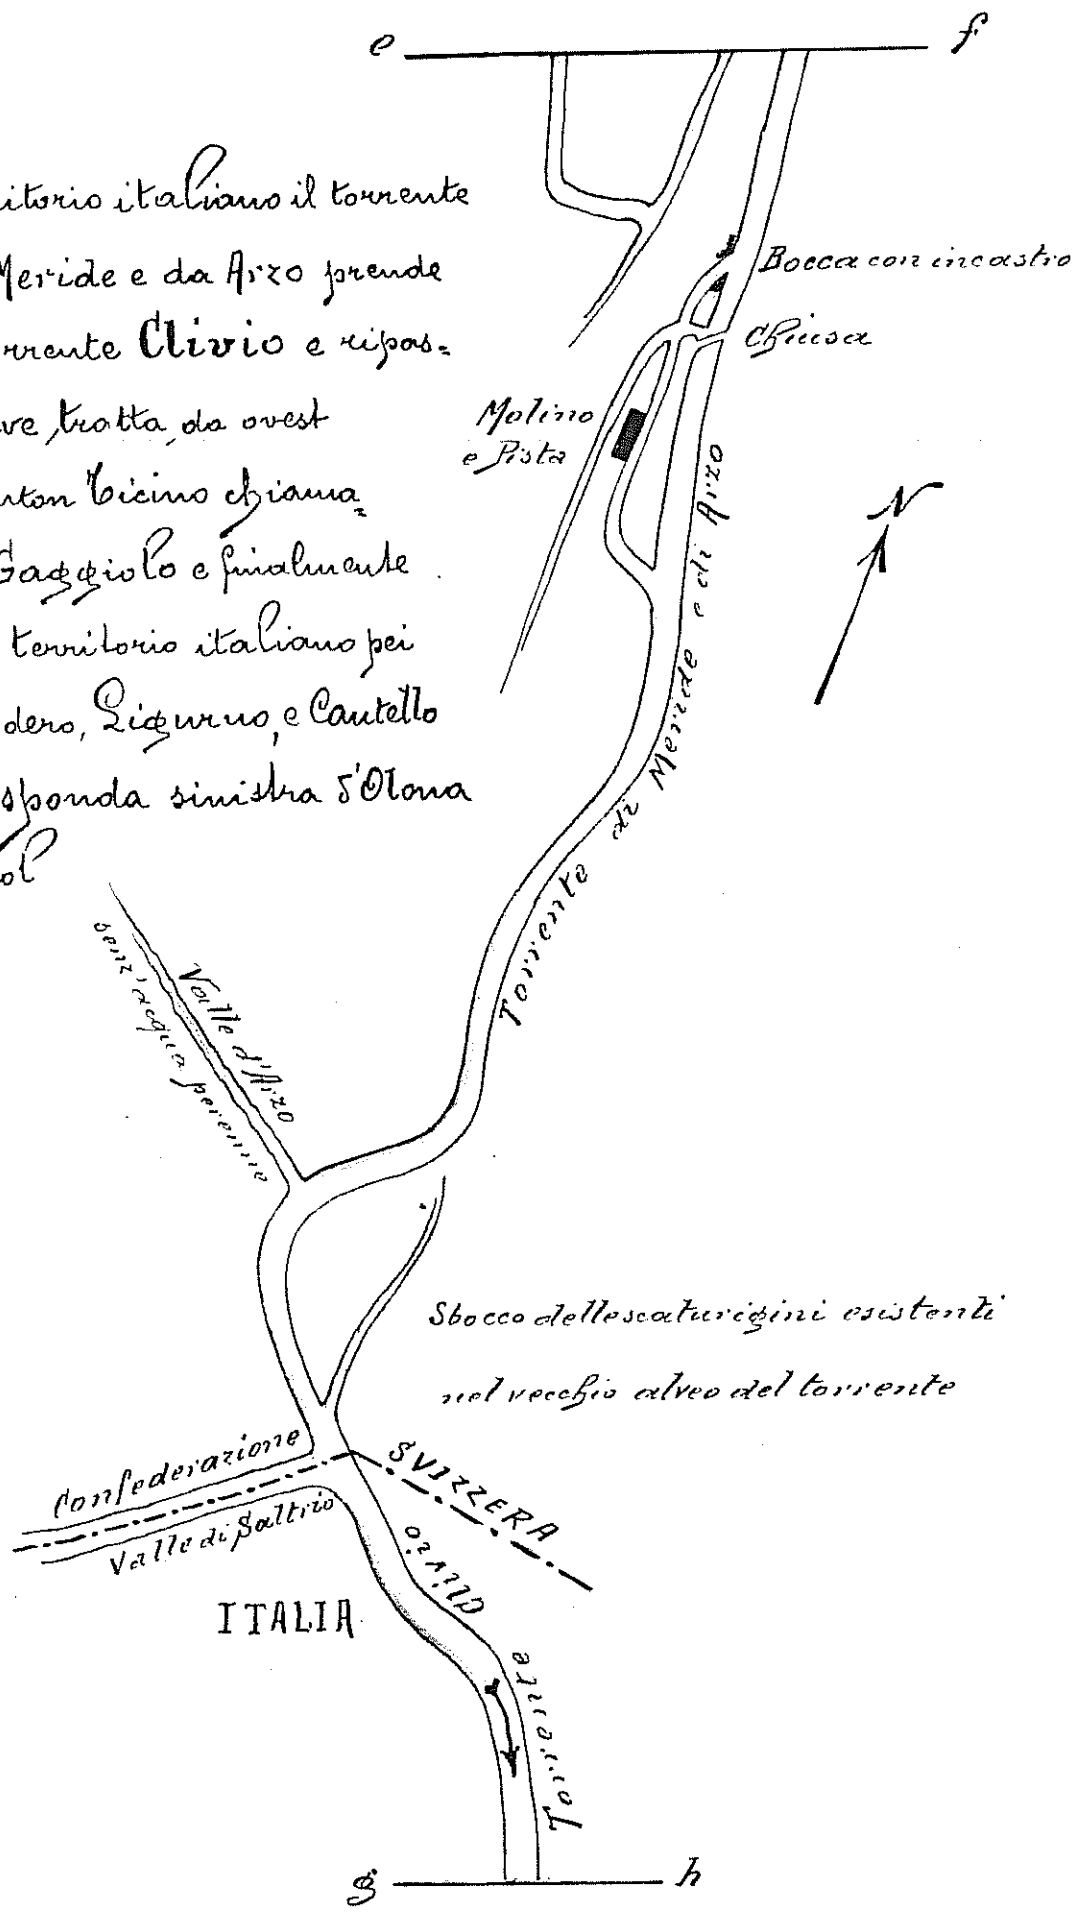 e f
itorio italiano il torrente
Meride e da Arzo prende
rrente Clivio e ripas=
ve, tratta, da ovest
nton Ticino chiama=
Gaggiolo e finalmente
territorio italiano pei
dero, Ligurno, e Cantello
sponda sinistra d'Olona
ol
Bocca con incastro
Chiusa
Molino
e Pista
N
Torrente di Meride e di Arzo
Valle d'Arzo
senz'acqua perenne
Sbocco delle scaturigini esistenti
nel vecchio alveo del torrente
Confederazione SVIZZERA
Valle di Saltrio
ITALIA
Torrente Clivio
g h